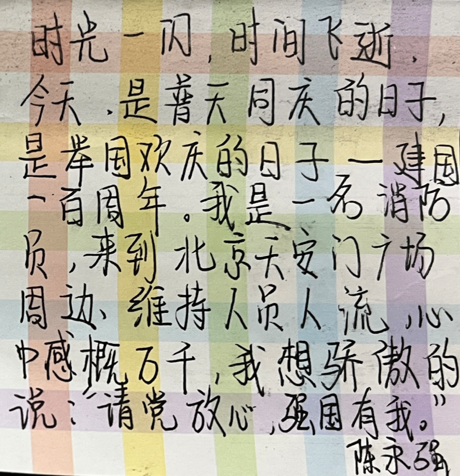 时光一闪,时间飞逝,
今天,是普天同庆的日子,
是举国欢庆的日子—建国
一百周年。我是一名消防
员,来到北京天安门广场
周边、维持人员人流,心
中感概万千,我想骄傲的
说:“请党放心,强国有我。”
陈永强